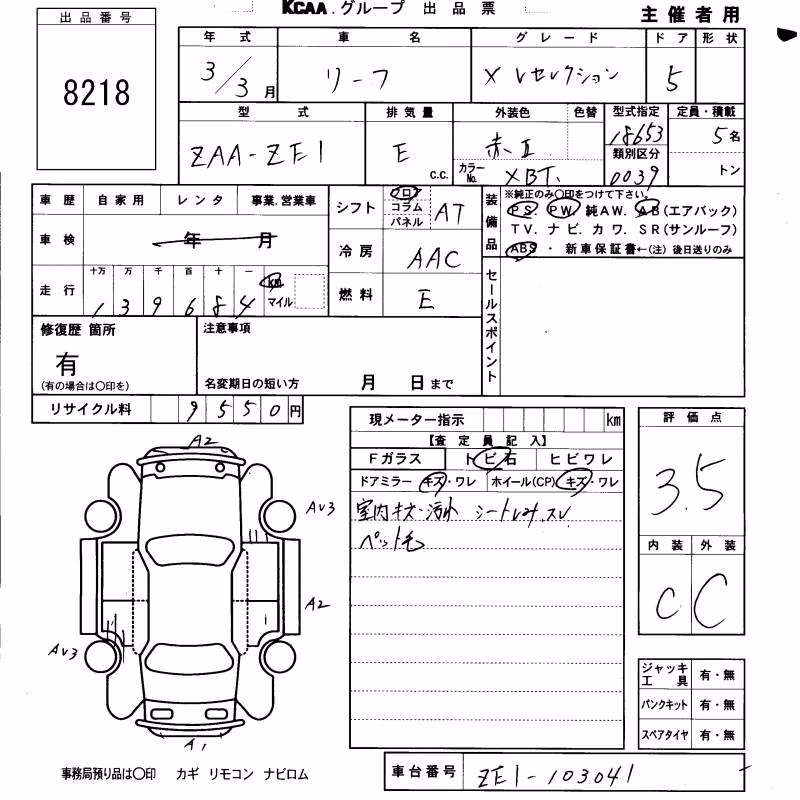 KCAA.グループ 出品票
主催者用
出品番号
8218
年式 車名 グレード ドア 形状
3/3月 リーフ X Vセレクション 5
型式 排気量 外装色 色替 型式指定 定員・積載
ZAA-ZE1 E c.c. 赤II 18653 5名
類別区分
カラーNo. XBT. 0039 トン
車歴 自家用 レンタ 事業.営業車
シフト フロ コラム パネル AT
装備品
※純正のみ○印をつけて下さい。
PS. PW. 純AW. AB(エアバック)
TV. ナビ. カワ. SR(サンルーフ)
ABS ・ 新車保証書←(注) 後日送りのみ
車検 年 月
冷房 AAC
走行 十万 万 千 百 十 一 km マイル
1 3 9 6 8 4
燃料 E
セールスポイント
修復歴 箇所
有
(有の場合は○印を)
注意事項
名変期日の短い方 月 日まで
リサイクル料 9 5 5 0 円
現メーター指示 km
【査定員記入】
Fガラス トビ石 ヒビワレ
ドアミラー キズ・ワレ ホイール(CP) キズ・ワレ
室内キズ・汚れ シートヨゴレ.スレ
ペット毛
評価点
3.5
内装 外装
C C
A2
AV3
A2
AV3
A1
ジャッキ工具 有・無
パンクキット 有・無
スペアタイヤ 有・無
事務局預り品は○印 カギ リモコン ナビロム
車台番号 ZE1-103041